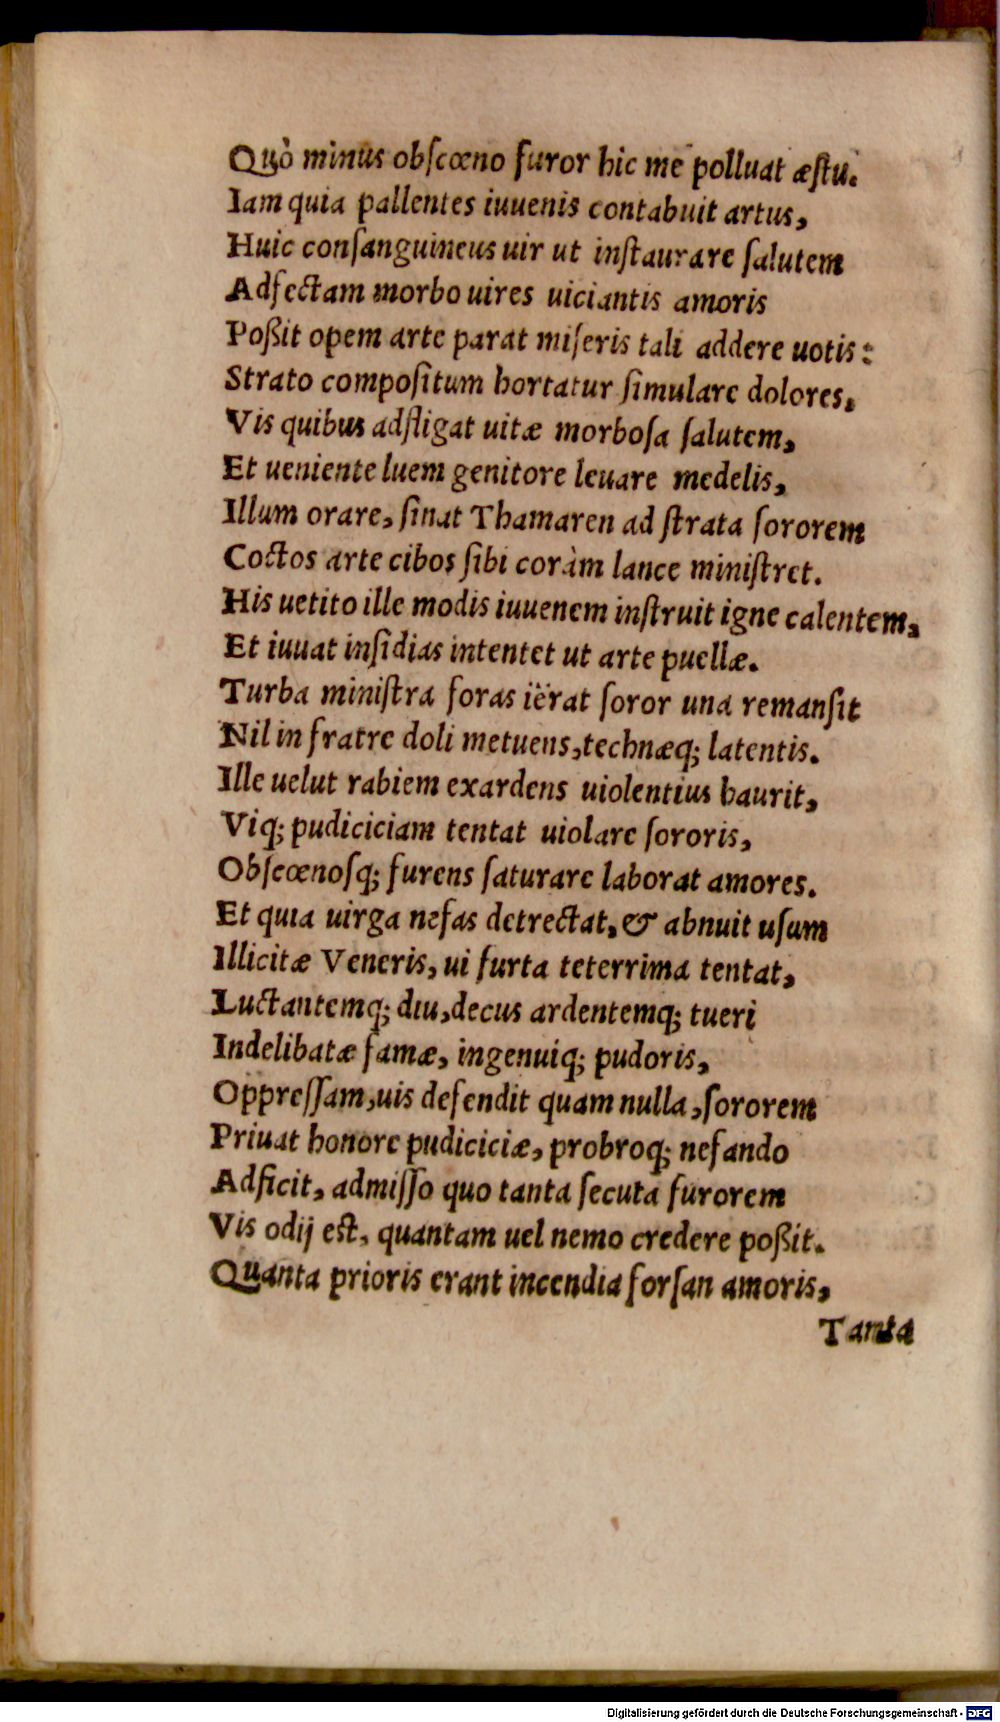 Quò minus obſcœno furor hic me polluat æſtu.
Iam quia pallentes iuuenis contabuit artus,
Huic conſanguineus uir ut inſtaurare ſalutem
Adfectam morbo uires uiciantis amoris
Poßit opem arte parat miſeris tali addere uotis:
Strato compoſitum hortatur ſimulare dolores,
Vis quibus adſligat uitæ morboſa ſalutem,
Et ueniente luem genitore leuare medelis,
Illum orare, ſinat Thamaren ad ſtrata ſororem
Coctos arte cibos ſibi coràm lance miniſtret.
His uetito ille modis iuuenem inſtruit igne calentem,
Et iuuat inſidias intentet ut arte puellæ.
Turba miniſtra foras iërat ſoror una remanſit
Nil in fratre doli metuens, technæq; latentis.
Ille uelut rabiem exardens uiolentius haurit,
Viq; pudiciciam tentat uiolare ſororis,
Obſcœnoſq; furens ſaturare laborat amores.
Et quia uirga nefas detrectat, & abnuit uſum
Illicitæ Veneris, ui furta teterrima tentat,
Luctantemq; diu, decus ardentemq; tueri
Indelibatæ famæ, ingenuiq; pudoris,
Oppreſſam, uis defendit quam nulla, ſororem
Priuat honore pudiciciæ, probroq; nefando
Adficit, admiſſo quo tanta ſecuta furorem
Vis odij eſt, quantam uel nemo credere poßit.
Quanta prioris erant incendia forſan amoris,
Tanta
Digitalisierung gefördert durch die Deutsche Forschungsgemeinschaft - DFG